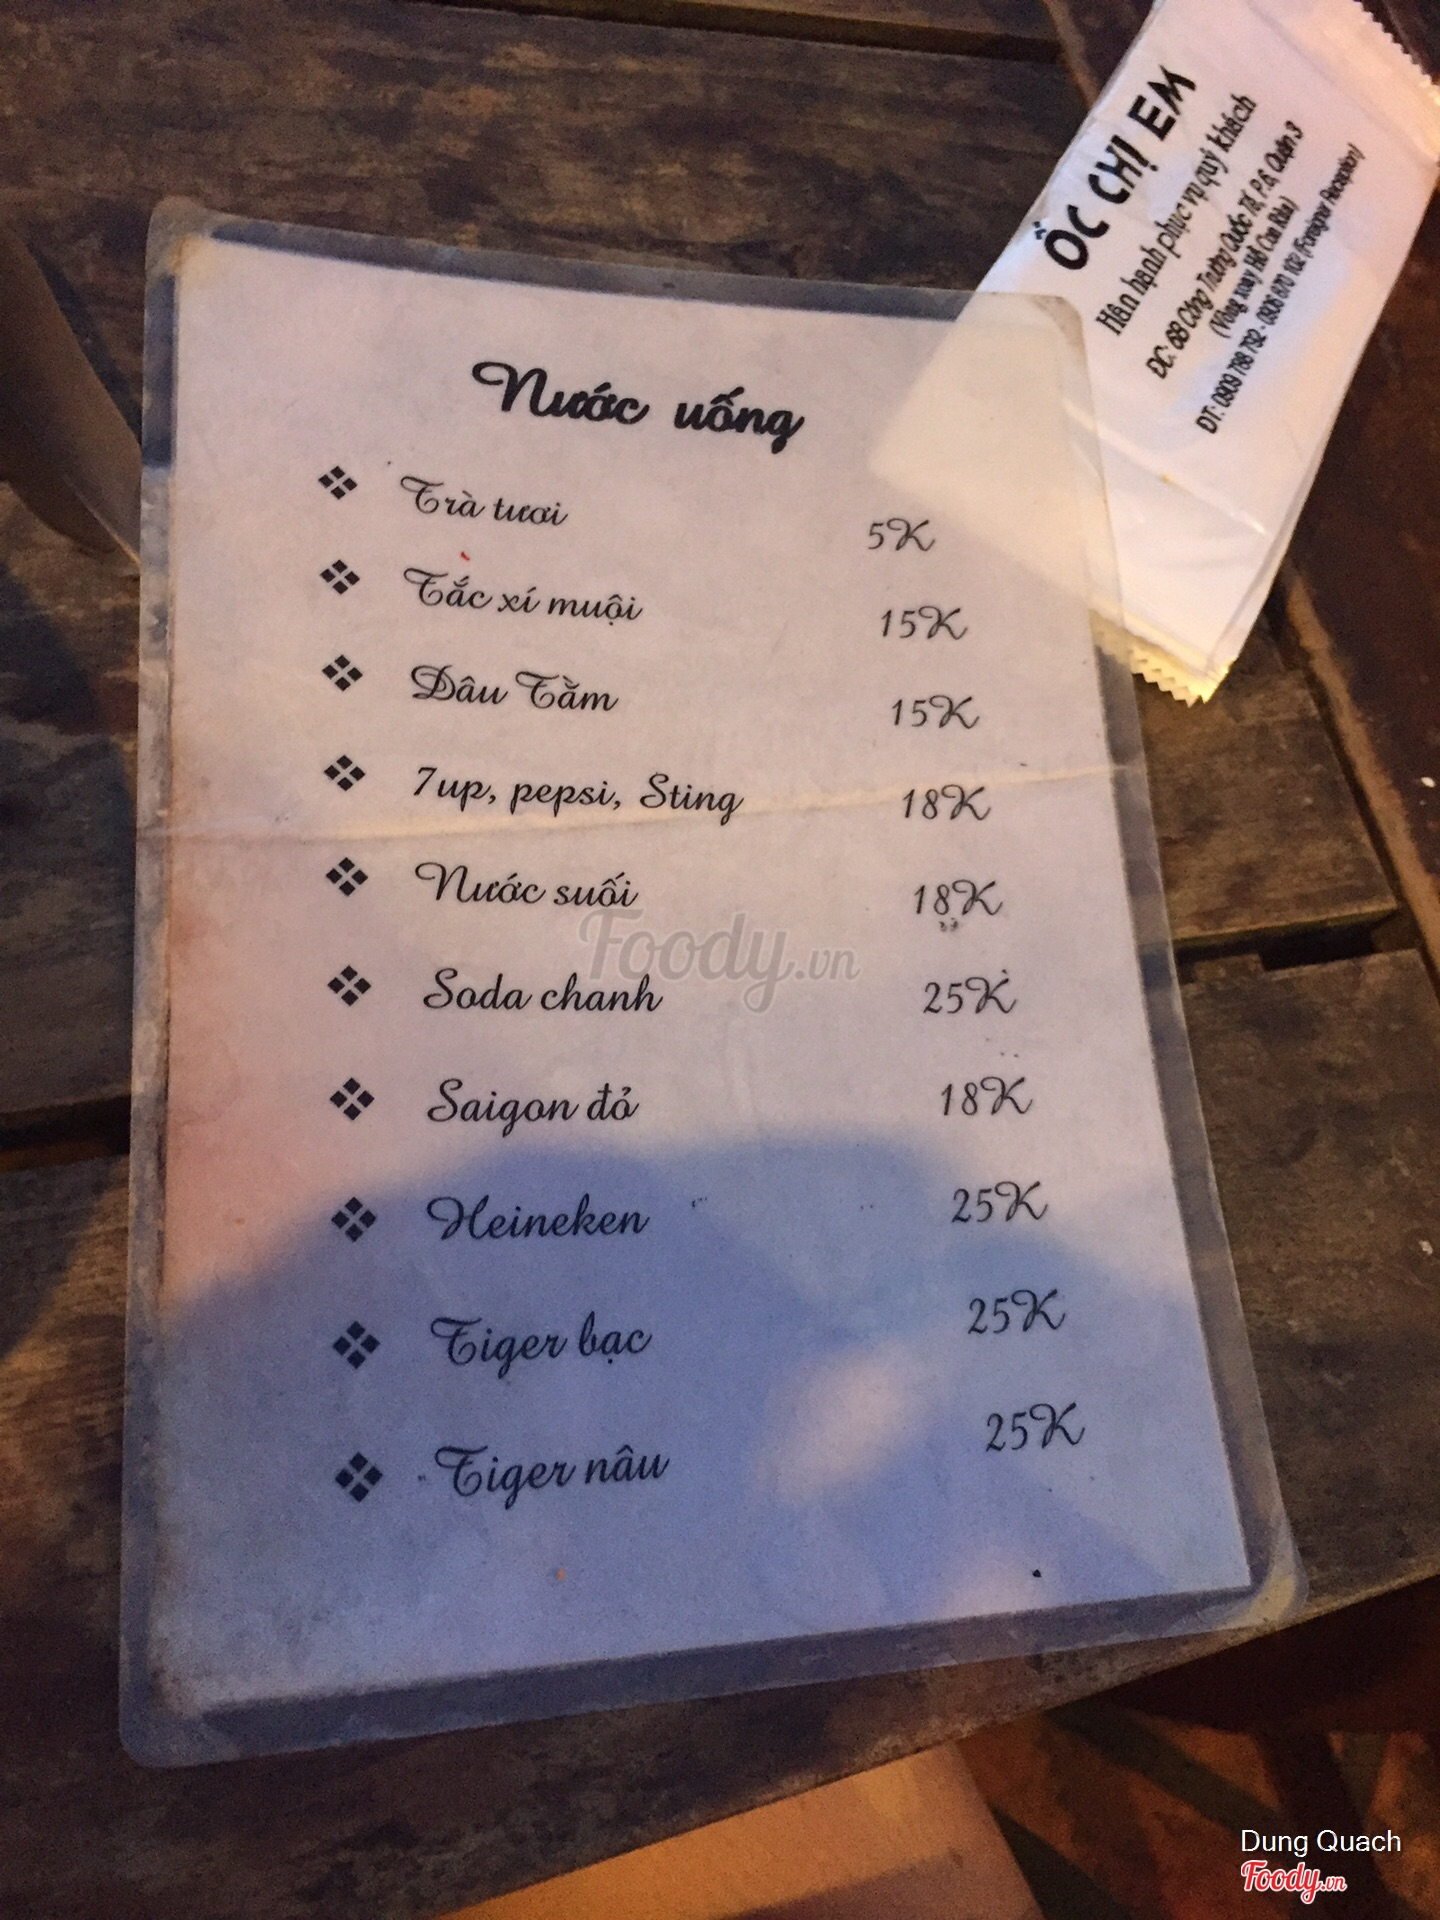 ỐC CHỊ EM
Hân hạnh phục vụ quý khách
ĐC: 68 Công Trường Quốc Tế, P.6, Quận 3
(Vòng xoay Hồ Con Rùa)
ĐT: 0909 798 792 - 0906 870 102 (Foreigner Reception)
Nước uống
❖ Trà tươi 5K
❖ Tắc xí muội 15K
❖ Dâu Tằm 15K
❖ 7up, pepsi, Sting 18K
❖ Nước suối 18K
❖ Soda chanh 25K
❖ Saigon đỏ 18K
❖ Heineken 25K
❖ Tiger bạc 25K
❖ Tiger nâu 25K
Foody.vn
Dung Quach
Foody.vn